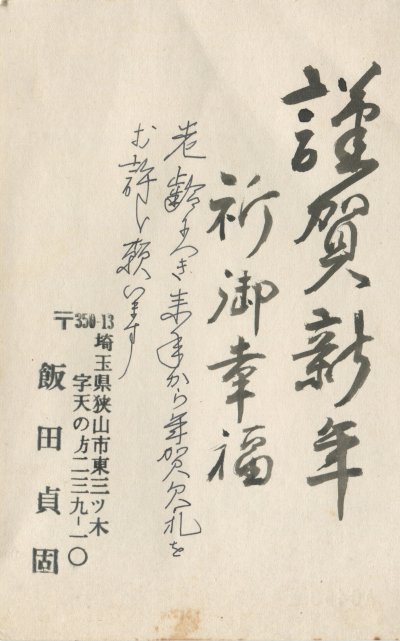 謹賀新年
祈御幸福
老齢につき来年から年賀欠札を
お許し願います
〒350-13
埼玉県狭山市東三ツ木
字天の方二三九-一〇
飯田貞固